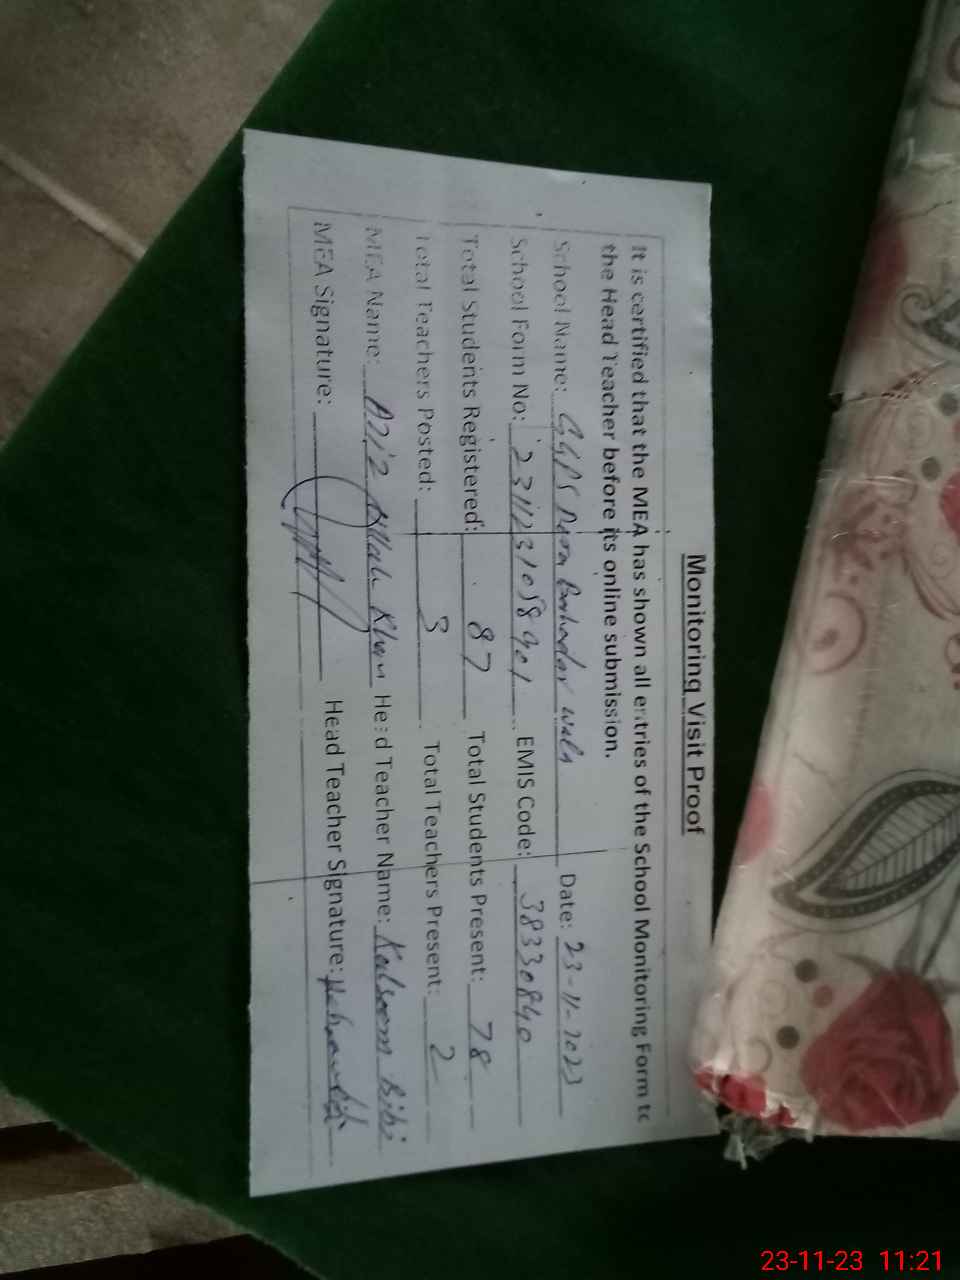 Monitoring Visit Proof
It is certified that the MEA has shown all entries of the School Monitoring Form to
the Head Teacher before its online submission.
School Name: GGPS Dera Bahadar wala Date: 23-11-2023
School Form No: 2311231058901 EMIS Code: 38330840
Total Students Registered: 87 Total Students Present: 78
Total Teachers Posted: 3 Total Teachers Present: 2
MEA Name: Aziz Ullah Khan Head Teacher Name: Kalsoom Bibi
MEA Signature: Head Teacher Signature:
23-11-23 11:21